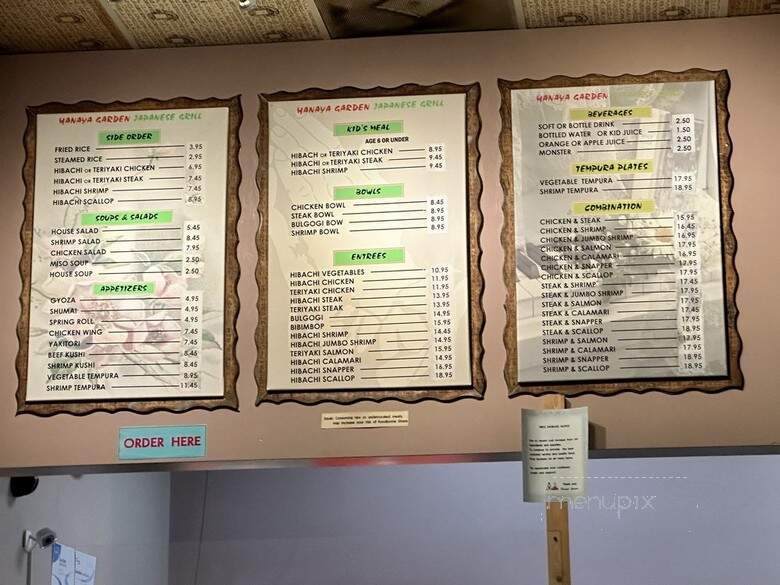 HANAYA GARDEN JAPANESE GRILL
SIDE ORDER
FRIED RICE 3.95
STEAMED RICE 2.95
HIBACHI OR TERIYAKI CHICKEN 6.95
HIBACHI OR TERIYAKI STEAK 7.45
HIBACHI SHRIMP 7.45
HIBACHI SCALLOP 8.95
SOUPS & SALADS
HOUSE SALAD 5.45
SHRIMP SALAD 8.45
CHICKEN SALAD 7.95
MISO SOUP 2.50
HOUSE SOUP 2.50
APPETIZERS
GYOZA 4.95
SHUMAI 4.95
SPRING ROLL 4.95
CHICKEN WING 7.45
YAKITORI 7.45
BEEF KUSHI 8.45
SHRIMP KUSHI 8.45
VEGETABLE TEMPURA 8.95
SHRIMP TEMPURA 11.45
ORDER HERE
HANAYA GARDEN JAPANESE GRILL
KID'S MEAL
AGE 6 OR UNDER
HIBACHI OR TERIYAKI CHICKEN 8.95
HIBACHI OR TERIYAKI STEAK 9.45
HIBACHI SHRIMP 9.45
BOWLS
CHICKEN BOWL 8.45
STEAK BOWL 8.95
BULGOGI BOW 8.95
SHRIMP BOWL 8.95
ENTREES
HIBACHI VEGETABLES 10.95
HIBACHI CHICKEN 11.95
TERIYAKI CHICKEN 11.95
HIBACHI STEAK 13.95
TERIYAKI STEAK 13.95
BULGOGI 14.95
BIBIMBOP 15.95
HIBACHI SHRIMP 14.45
HIBACHI JUMBO SHRIMP 14.95
TERIYAKI SALMON 15.95
HIBACHI CALAMARI 14.95
HIBACHI SNAPPER 16.95
HIBACHI SCALLOP 18.95
HANAYA GARDEN JAPANESE GRILL
BEVERAGES
SOFT OR BOTTLE DRINK 2.50
BOTTLED WATER OR KID JUICE 1.50
ORANGE OR APPLE JUICE 2.50
MONSTER 2.50
TEMPURA PLATES
VEGETABLE TEMPURA 17.95
SHRIMP TEMPURA 18.95
COMBINATION
CHICKEN & STEAK 15.95
CHICKEN & SHRIMP 16.45
CHICKEN & JUMBO SHRIMP 16.95
CHICKEN & SALMON 17.95
CHICKEN & CALAMARI 16.95
CHICKEN & SNAPPER 17.95
CHICKEN & SCALLOP 17.95
STEAK & SHRIMP 17.45
STEAK & JUMBO SHRIMP 17.95
STEAK & SALMON 17.95
STEAK & CALAMARI 17.45
STEAK & SNAPPER 17.95
STEAK & SCALLOP 18.95
SHRIMP & SALMON 17.95
SHRIMP & CALAMARI 17.95
SHRIMP & SNAPPER 18.95
SHRIMP & SCALLOP 18.95
menupix